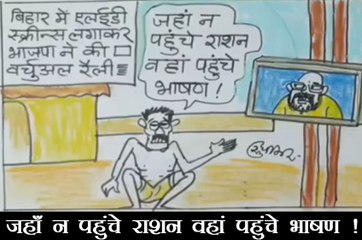 बिहार में एलईडी
स्क्रीन्स लगाकर
भाजपा ने की
वर्चुअल रैली
जहां न
पहुंचे राशन
वहां पहुंचे
भाषण !
जहाँ न पहुंचे राशन वहां पहुंचे भाषण !